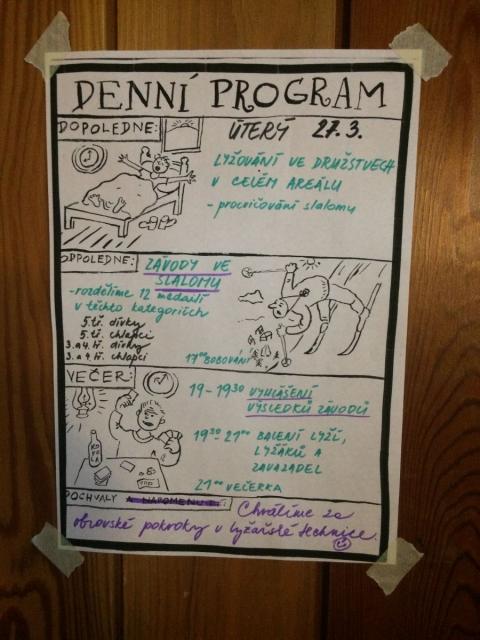 DENNÍ PROGRAM
DOPOLEDNE:
ÚTERÝ 27.3.
LYŽOVÁNÍ VE DRUŽSTVECH
V CELÉM AREÁLU
- procvičování slalomu
ODPOLEDNE:
ZÁVODY VE
SLALOMU
- rozdělíme 12 medailí
v těchto kategoriích
5.tř. dívky
5.tř. chlapci
3.a 4. tř. dívky
3. a 4. tř. chlapci
17⁰⁰ BOBOVÁNÍ
VEČER:
19 - 19³⁰ VYHLÁŠENÍ
VÝSLEDKŮ ZÁVODŮ
19³⁰ 21⁰⁰ BALENÍ LYŽÍ,
LYŽÁKŮ A
ZAVAZADEL
21⁰⁰ VEČERKA
POCHVALY A NAPOMENUTÍ:
Chválíme za
obrovské pokroky v lyžařské technice.